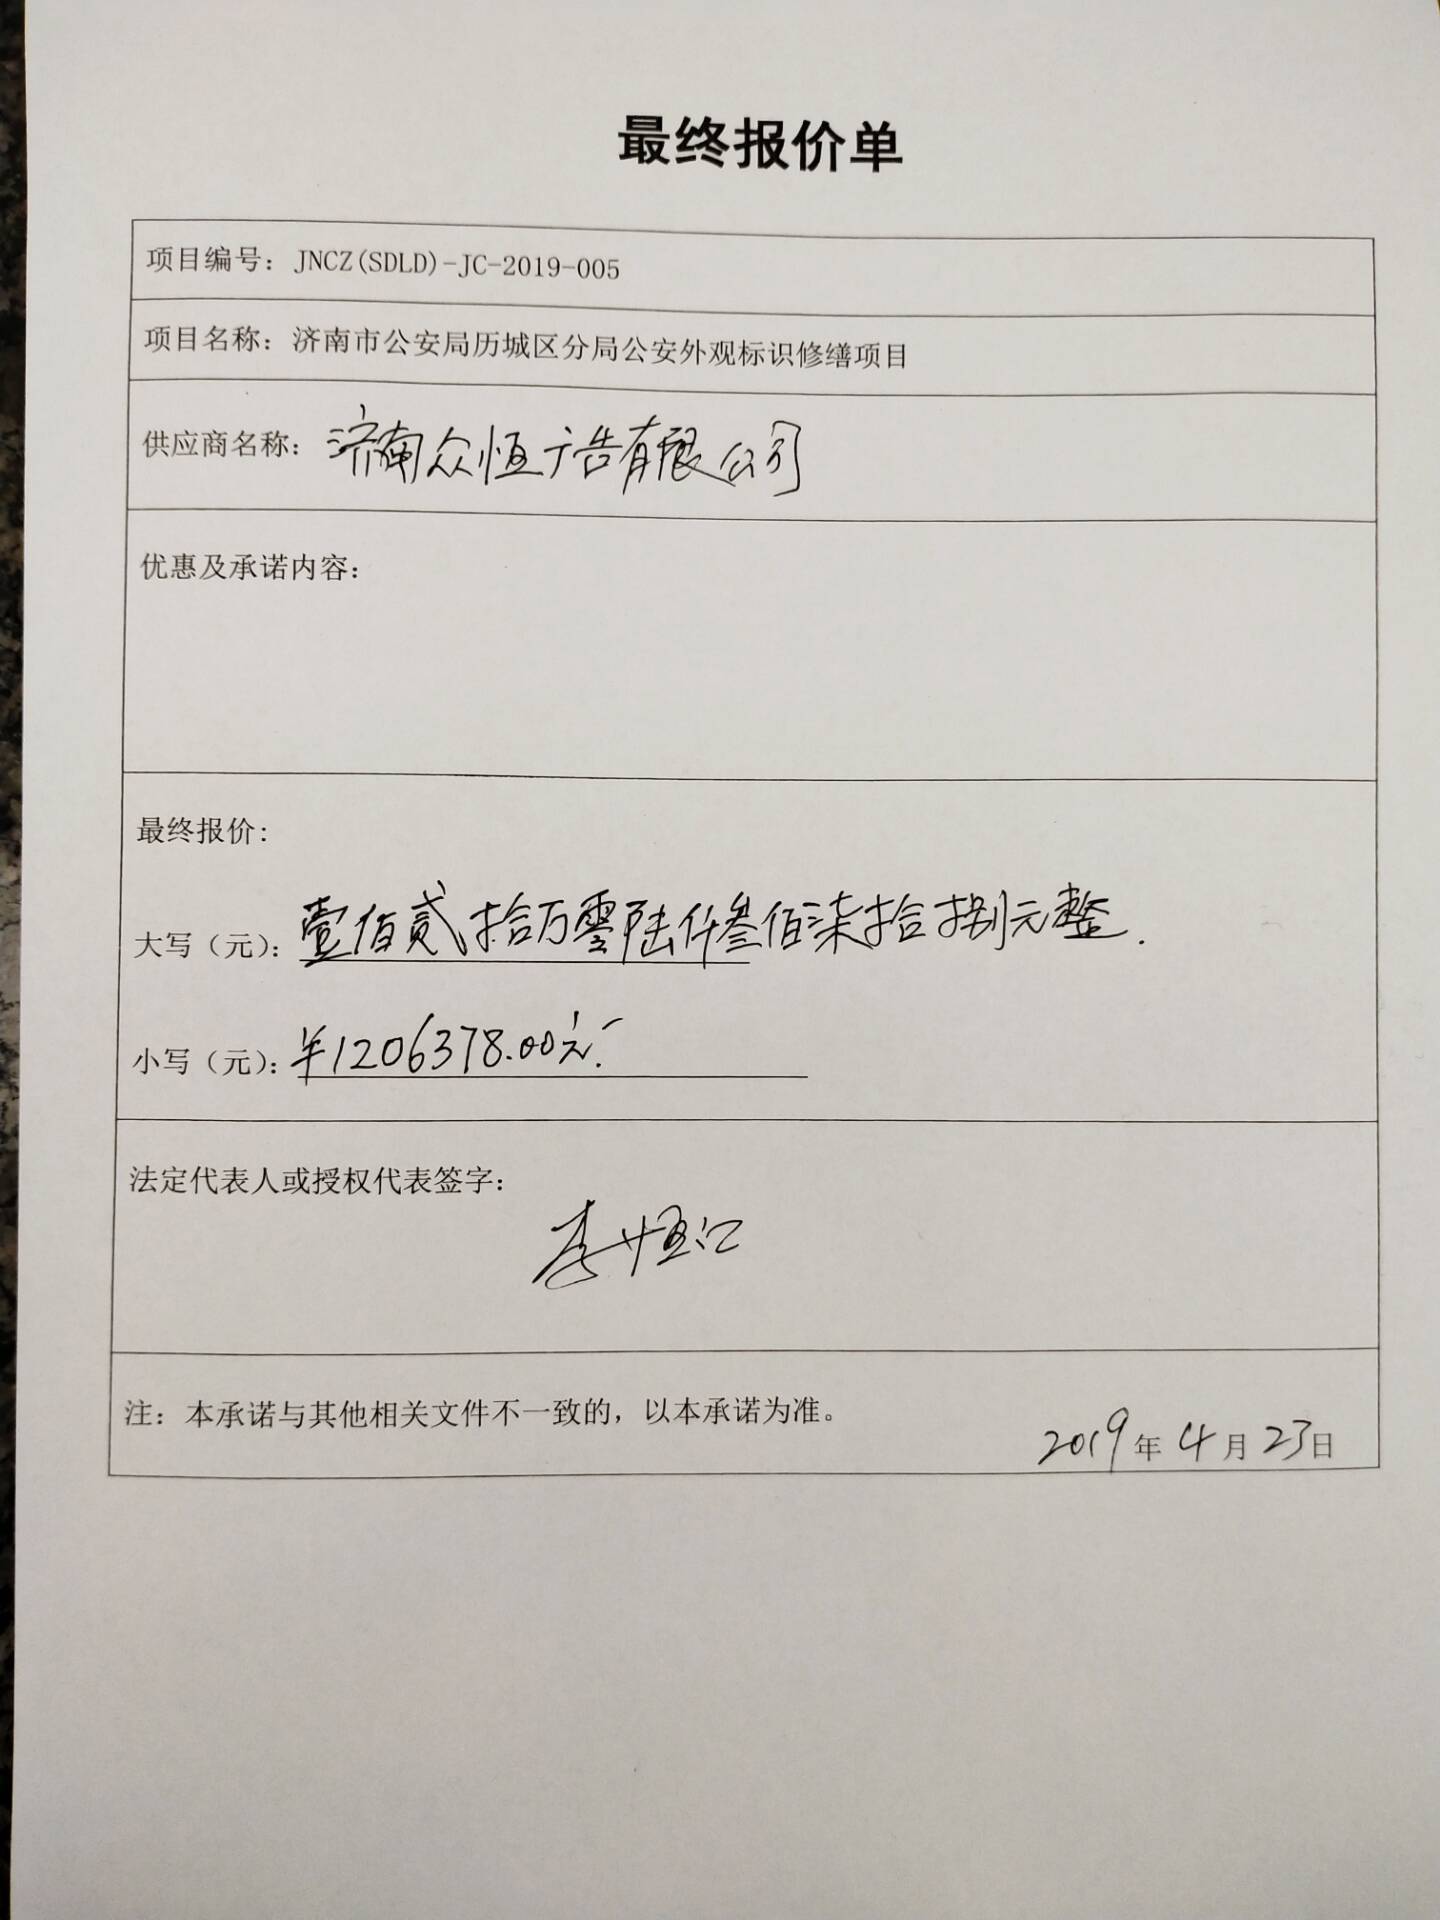 最终报价单
项目编号：JNCZ(SDLD)-JC-2019-005
项目名称：济南市公安局历城区分局公安外观标识修缮项目
供应商名称：济南众恒广告有限公司
优惠及承诺内容：
最终报价：
大写（元）：壹佰贰拾万零陆仟叁佰柒拾捌元整.
小写（元）：¥1206378.00元.
法定代表人或授权代表签字：
李恒江
注：本承诺与其他相关文件不一致的，以本承诺为准。
2019年4月23日